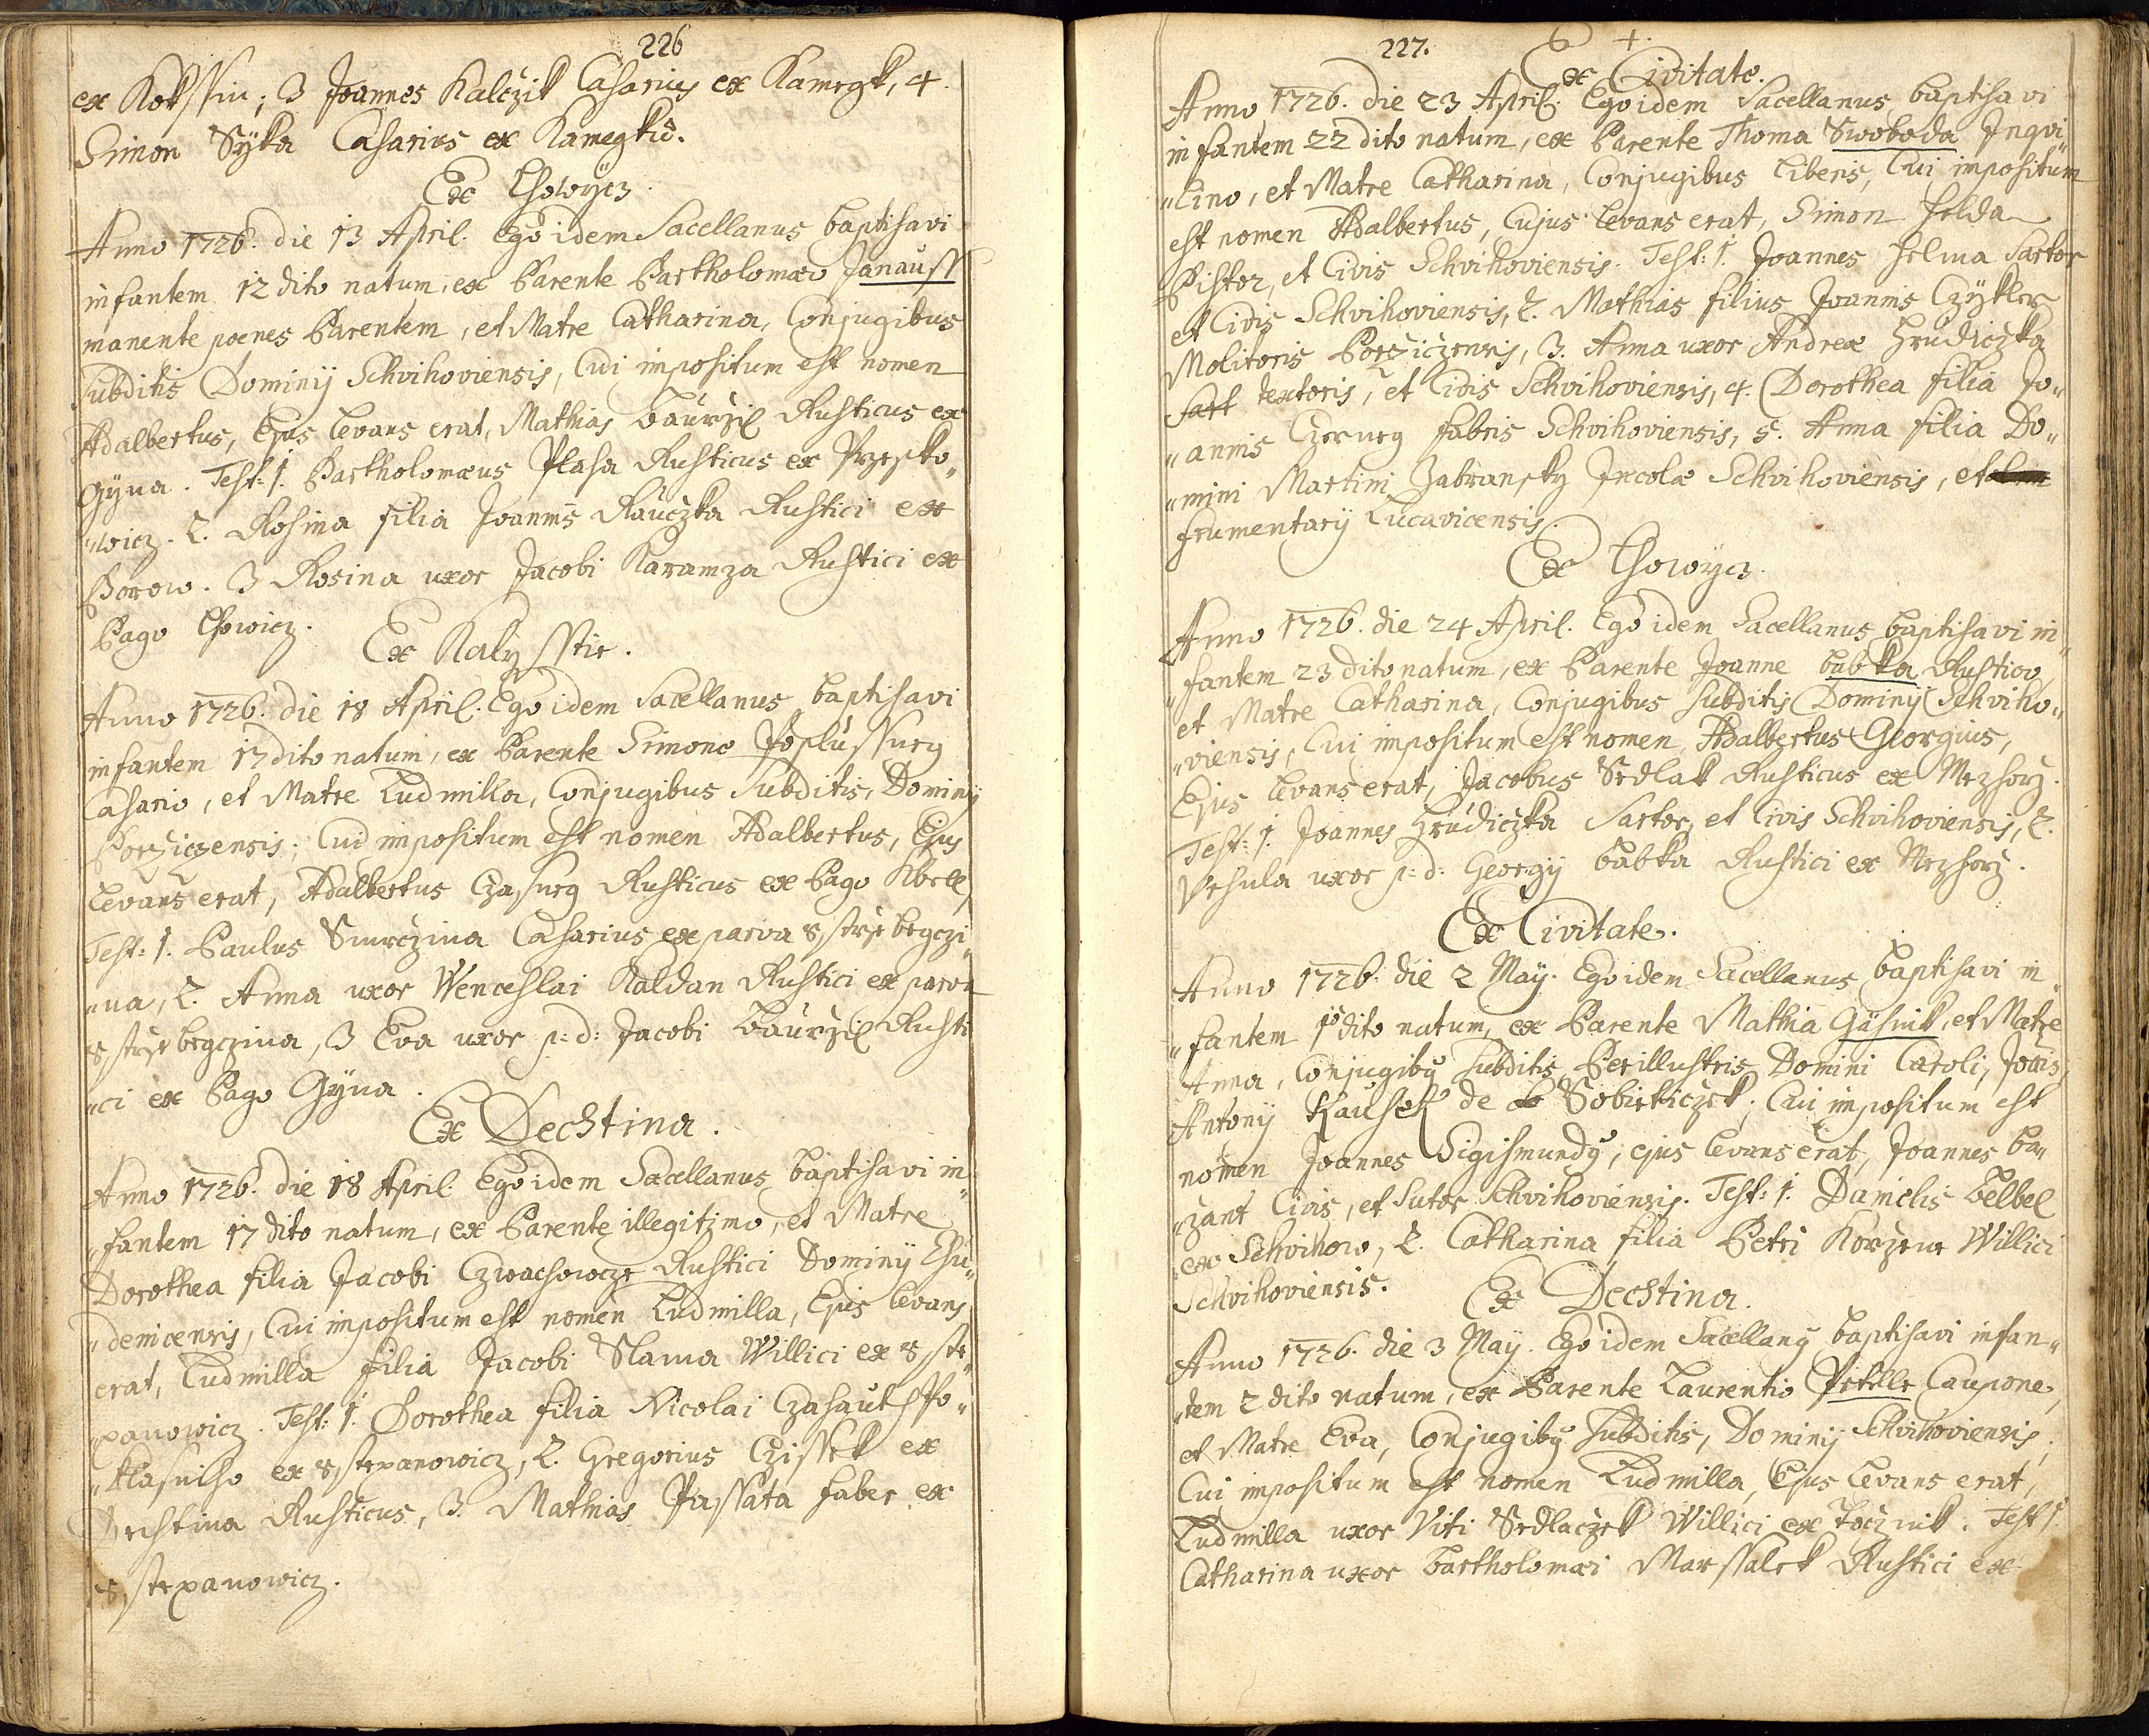 226
ex Kokssin; 3 Joannes Kalczik Casarius ex Kamegk, 4.
Simon Syka Casarius ex Kamegku.
Ex Lhowycz.
Anno 1726. die 13 April. Ego idem Sacellanus baptisavi
infantem 12 dito natum, ex Parente Bartholomæo Janauss
manente poenes Parentem, et Matre Catharina, Conjugibus
subditis Dominij Schvihoviensis, Cui impositum est nomen
Adalbertus, Ejus levans erat, Mathias Baurzil Rusticus ex
Gÿna. Test: 1. Bartholomæus Plasa Rusticus ex Przesko„
„wicz. 2. Rosina filia Joannis Rauczka Rustici ex
Borow. 3 Rosina uxor Jacobi Karamza Rustici ex
Pago Lhowicz.
Ex Kalysstie.
Anno 1726. die 18 April. Ego idem Sacellanus baptisavi
infantem 17 dito natum, ex Parente Simone Poslussneg
Casario, et Matre Ludmilla, Conjugibus Subditis, Dominij
Porziczensis; Cui impositum est nomen Adalbertus, Ejus
levans erat, Adalbertus Czasneg Rusticus ex Pago Kbell,
Test: 1. Paulus Smrczina Casarius ex parva
„na, 2. Anna uxor Wenceslai Kaldan Rustici ex parva
3 Eva uxor p: d: Jacobi Baurzil Rusti
„ci ex Pago Gÿna.
Ex Dechtina.
Anno 1726. die 18 April. Ego idem Sacellanus baptisavi in„
„fantem 17 dito natum, ex Parente illegitimo, et Matre
Dorothea filia Jacobi Czwachowcze Rustici Dominij Chu„
„denicensis, Cui impositum est nomen Ludmilla, Ejus levans
erat, Ludmilla filia Jacobi Slama Willici ex
„panowicz. Test: 1. Dorothea filia Nicolai
ex 2. Gregorius Czissek ex
Dechtina Rusticus, 3. Mathias Passata Faber ex
227.
Ex Civitate.
Anno 1726. die 23 April. Ego idem Sacellanus baptisavi
infantem 22 dito natum, ex Parente Thoma Swoboda Inqvi„
„lino, et Matre Catharina, Conjugibus liberis, Cui impositum
est nomen Adalbertus, Cujus levans erat, Simon Helda
Pistor, et Civis Schvihoviensis. Test: 1. Joannes Helma Sartor
et Civis Schvihoviensis, 2. Mathias filius Joannis Czykler
Molitoris Porziczensis, 3. Anna uxor Andreæ Hrudiczka
Sart textoris, et Civis Schvihoviensis, 4. Dorothea filia Jo„
„annis Czerneg Fabris Schvihoviensis, 5. Anna filia Do„
„mini Martini Zabransky Incolæ Schvihoviensis, et
frumentarij Lucavicensis.
Ex Lhowycz.
Anno 1726. die 24 April. Ego idem Sacellanus baptisavi in„
„fantem 23 dito natum, ex Parente Joanne Babka Rustico,
et Matre Catharina, Conjugibus Subditis Dominij Schviho„
„viensis, Cui impositum est nomen Adalbertus Georgius,
Ejus levans erat, Jacobus Sedlak Rusticus ex Mezhorz.
Test: 1. Joannes Hrudiczka Sartor, et Civis Schvihoviensis, 2.
Ursula uxor p: d: Georgij Babka Rustici ex Mezhorz.
Ex Civitate.
Anno 1726. die 2 Maÿ. Ego idem Sacellanus baptisavi in„
„fantem 1º dito natum, ex Parente Mathia Gäsnik, et Matre
Anna, Conjugibus Subditis Perillustris Domini Caroli, Jois,
Antonij Kauseck de Sobieticzek; Cui impositum est
nomen Joannes Sigismundus, ejus levans erat, Joannes Ba„
„zant Civis, et Sutor Schvihoviensis. Test: 1. Danielis Belbel
ex Schvihow, 2. Catharina filia Petri Korzene Willici
Schvihoviensis.
Ex Dechtina.
Anno 1726. die 3 Maÿ. Ego idem Sacellanus baptisavi infan„
„tem 2 dito natum, ex Parente Laurentio Petelle Caupone,
et Matre Eva, Conjugibus Subditis, Dominij Schvihoviensis,
Cui impositum est nomen Ludmilla, Ejus levans erat,
Ludmilla uxor Viti Sedlaczek Willici ex Tocznik. Test 1.
Catharina uxor Bartholomæi Marssalek Rustici ex